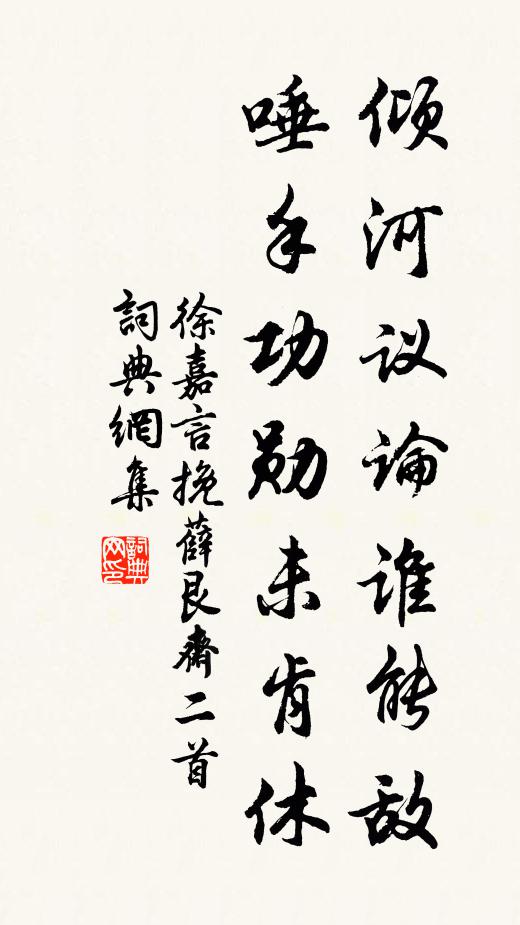 倾河议论谁能敌
唾手功勋未肯休
徐嘉言挽薛艮齋二首
詞典網集
詞典网印